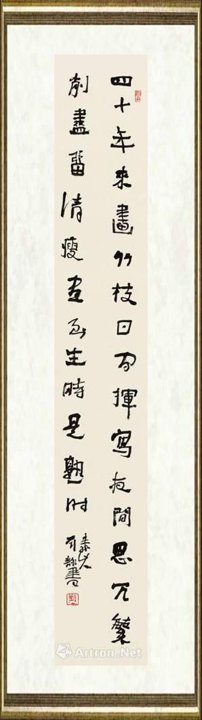 四十年来畫竹枝日间揮寫夜間思冗繁
削盡留清瘦畫到生時是熟时
書
Artron.Net